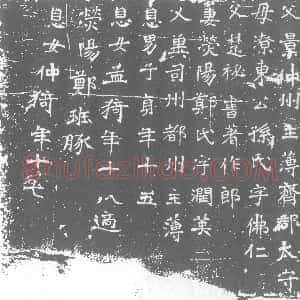 父景仲州主薄齊郡太守
母潦東公孫氏字佛仁
父楚秘書著作郎
妻熒陽鄭氏字潤英
父萬司州都州主薄
息男子貞年十五
息女孟猗年十八適
熒陽鄭班豚
息女仲猗年十七
shufazitao.com